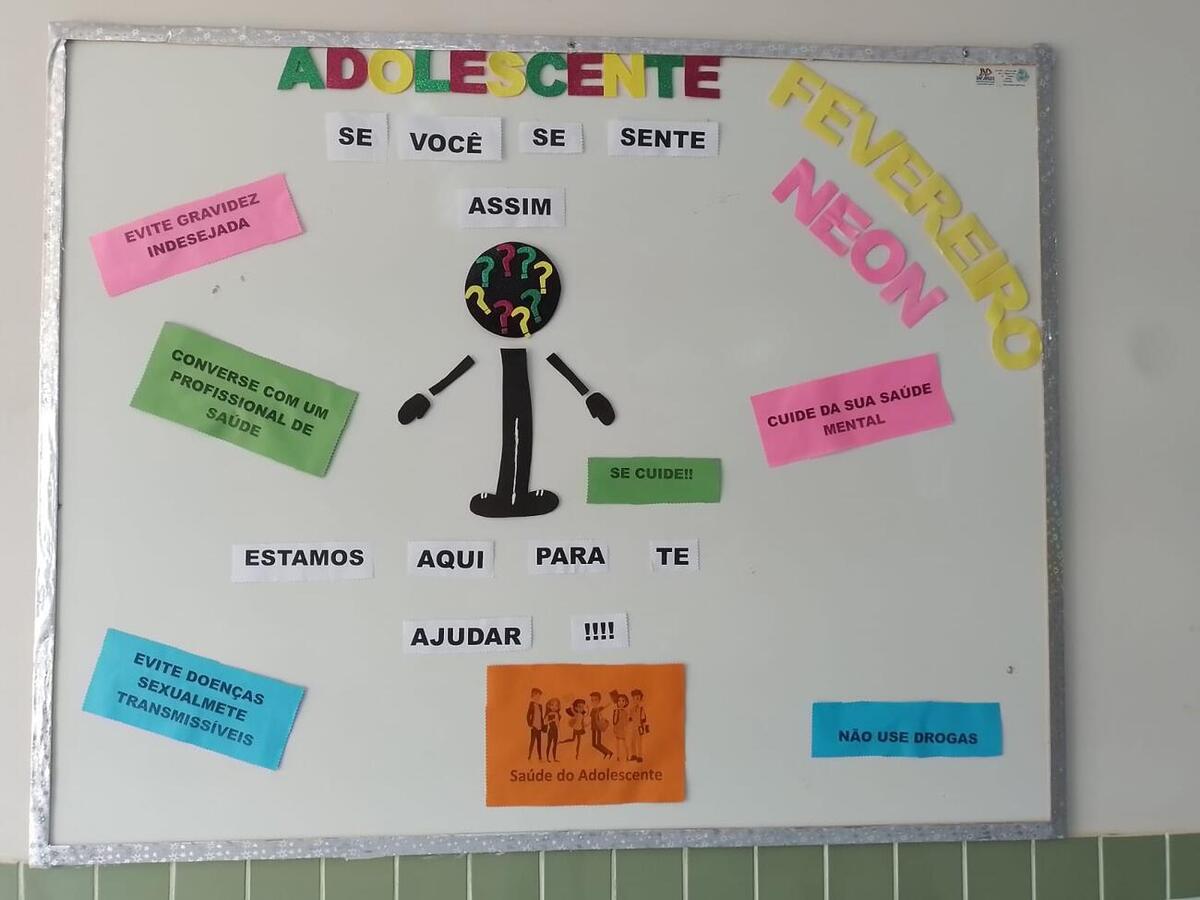 ADOLESCENTE
SE VOCÊ SE SENTE
ASSIM
FEVEREIRO
NEON
EVITE GRAVIDEZ
INDESEJADA
CONVERSE COM UM
PROFISSIONAL DE
SAÚDE
CUIDE DA SUA SAÚDE
MENTAL
SE CUIDE!!
ESTAMOS AQUI PARA TE
AJUDAR !!!!
EVITE DOENÇAS
SEXUALMETE
TRANSMISSÍVEIS
Saúde do Adolescente
NÃO USE DROGAS